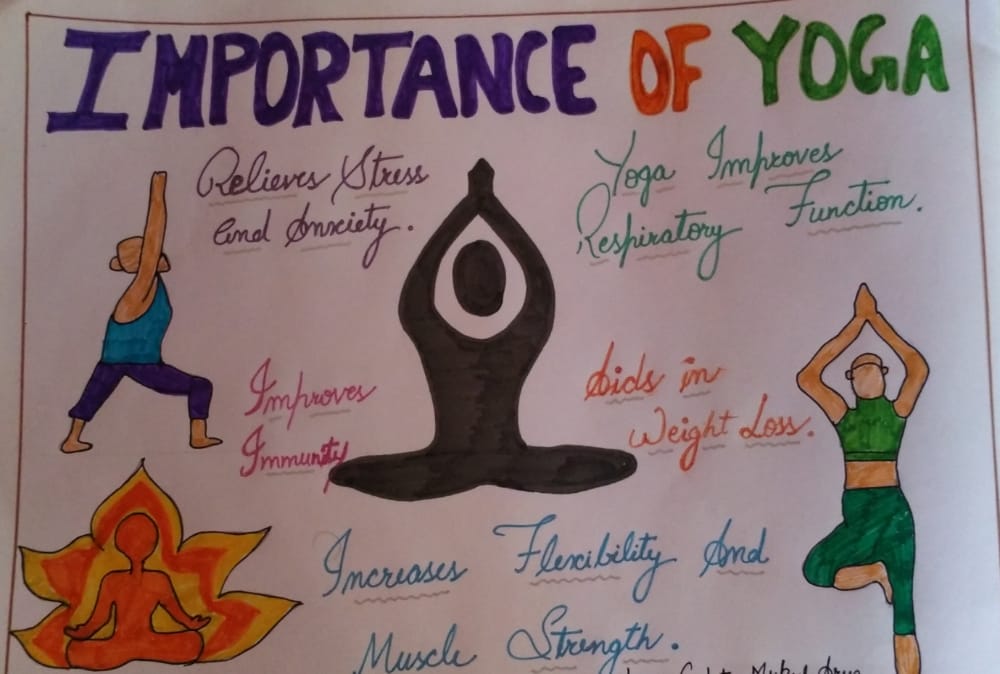 IMPORTANCE OF YOGA
Relieves Stress
And Anxiety.
Yoga Improves
Respiratory Function.
Improves
Immunity
Aids in
Weight Loss.
Increases Flexibility And
Muscle Strength.